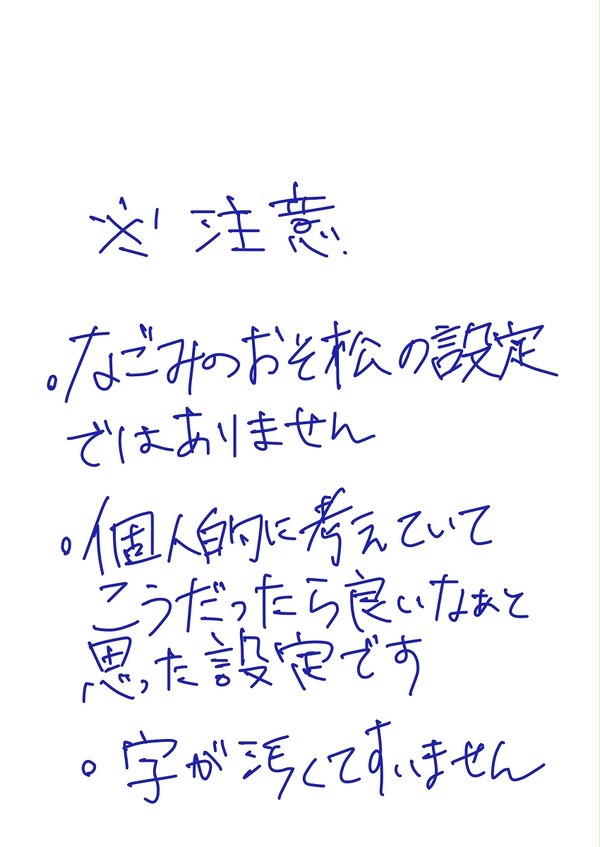 ※ 注意
。なごみのおそ松の設定
ではありません
。個人的に考えていて
こうだったら良いなぁと
思った設定です
。字が汚くてすいません